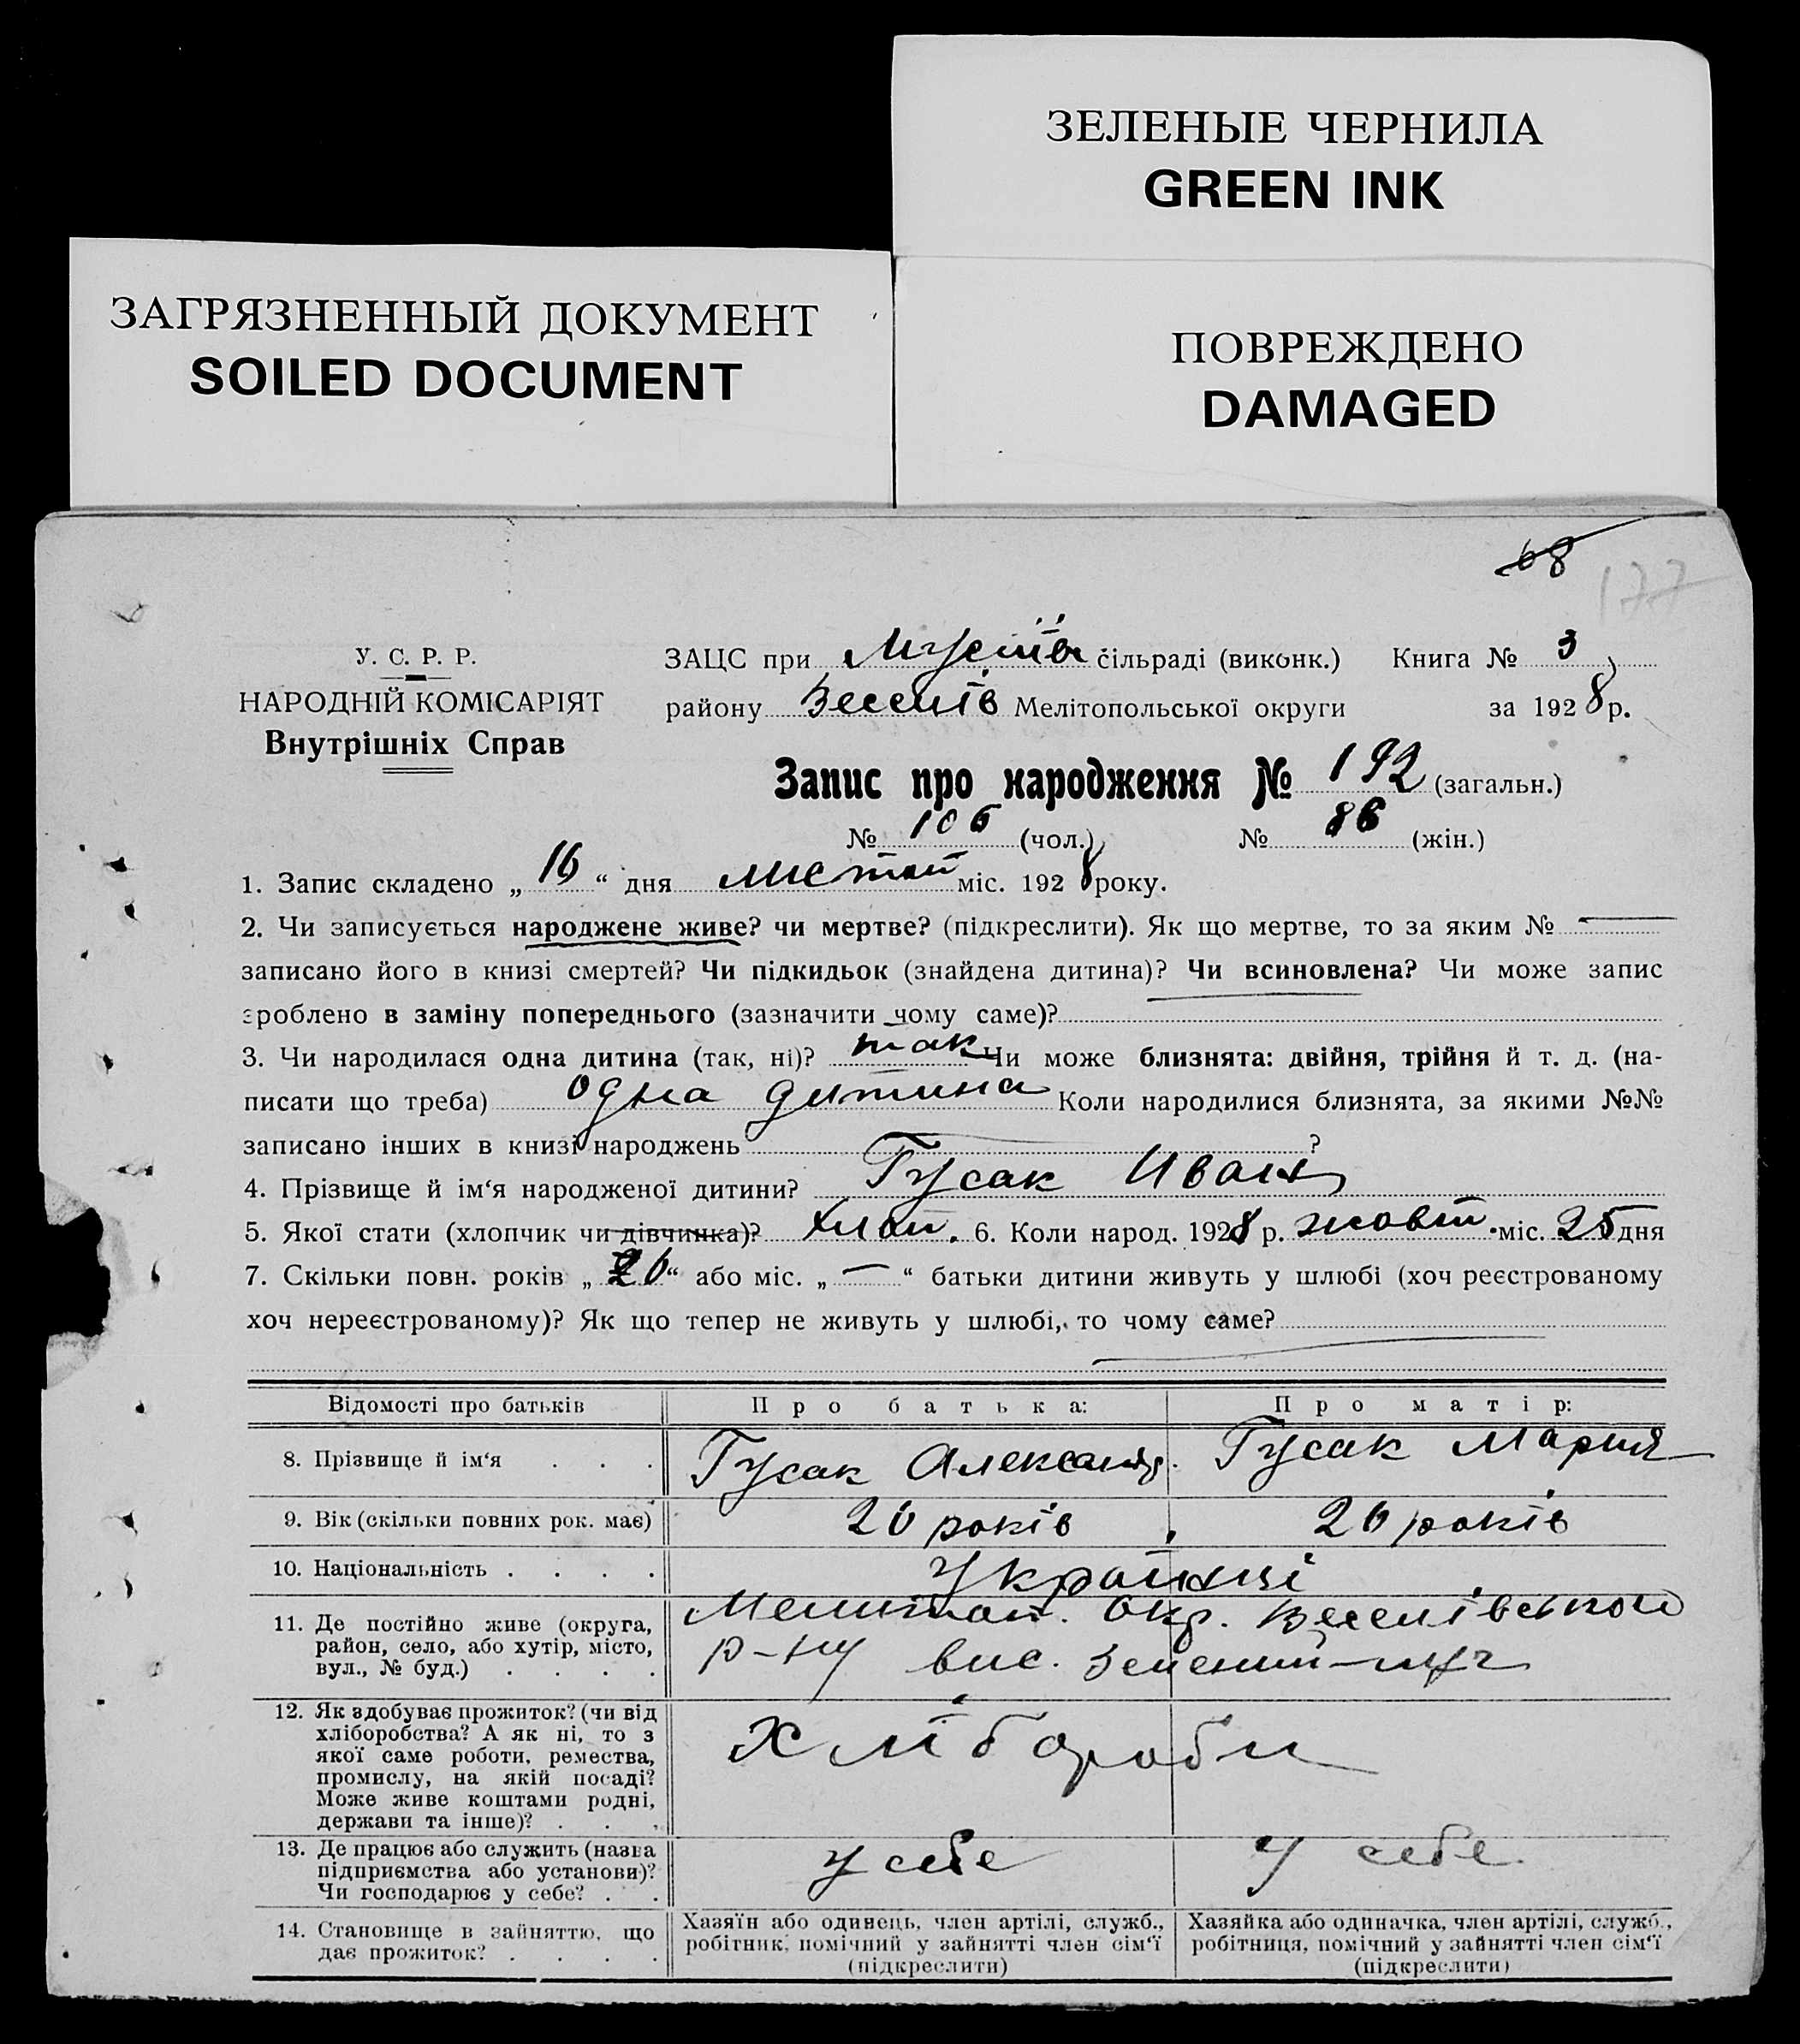 ЗЕЛЕНЫЕ ЧЕРНИЛА
GREEN INK
ЗАГРЯЗНЕННЫЙ ДОКУМЕНТ
SOILED DOCUMENT
ПОВРЕЖДЕНО
DAMAGED
68
177
У. С. Р. Р.
НАРОДНІЙ КОМІСАРІЯТ
Внутрішніх Справ
ЗАЦС при сільраді (виконк.) Книга № 3
району Веселів Мелітопольської округи за 1928 р.
Запис про народження № 192 (загальн.)
№ 106 (чол.) № 86 (жін.)
1. Запис складено „ 16 “ дня листоп міс. 1928 року.
2. Чи записується народжене живе? чи мертве? (підкреслити). Як що мертве, то за яким № —
записано його в книзі смертей? Чи підкидьок (знайдена дитина)? Чи всиновлена? Чи може запис
зроблено в заміну попереднього (зазначити чому саме)?
3. Чи народилася одна дитина (так, ні)? так Чи може близнята: двійня, трійня й т. д. (на-
писати що треба) одна дитина Коли народилися близнята, за якими №№
записано інших в книзі народжень ?
4. Прізвище й ім‘я народженої дитини? Гусак Иван
5. Якої стати (хлопчик чи дівчинка)? хлоп. 6. Коли народ. 1928 р. жовт. міс. 25 дня
7. Скільки повн. років „ “ або міс. „ — “ батьки дитини живуть у шлюбі (хоч реєстрованому
хоч нереєстрованому)? Як що тепер не живуть у шлюбі, то чому саме?
Відомості про батьків Про батька: Про матір:
8. Прізвище й ім‘я . . . Гусак Александр. Гусак Мария
9. Вік (скільки повних рок. має) 26 років 26 років
10. Національність . . . . Українці
11. Де постійно живе (округа, район, село, або хутір, місто, вул., № буд.) . . . .
Мелитоп. Окр. Веселівського
р-ну вис. Зелений-луг
12. Як здобуває прожиток? (чи від хліборобства? А як ні, то з якої саме роботи, ремества, промислу, на якій посаді? Може живе коштами родні, держави та інше)? . . .
Хлібороби
13. Де працює або служить (назва підприємства або установи)? Чи господарює у себе? . .
у себе у себе.
14. Становище в зайняттю, що дає прожиток? . . . .
Хазяїн або одинець, член артілі, служб., робітник, помічний у зайнятті член сім‘ї (підкреслити)
Хазяйка або одиначка, член артілі, служб., робітниця, помічний у зайнятті член сім‘ї (підкреслити)